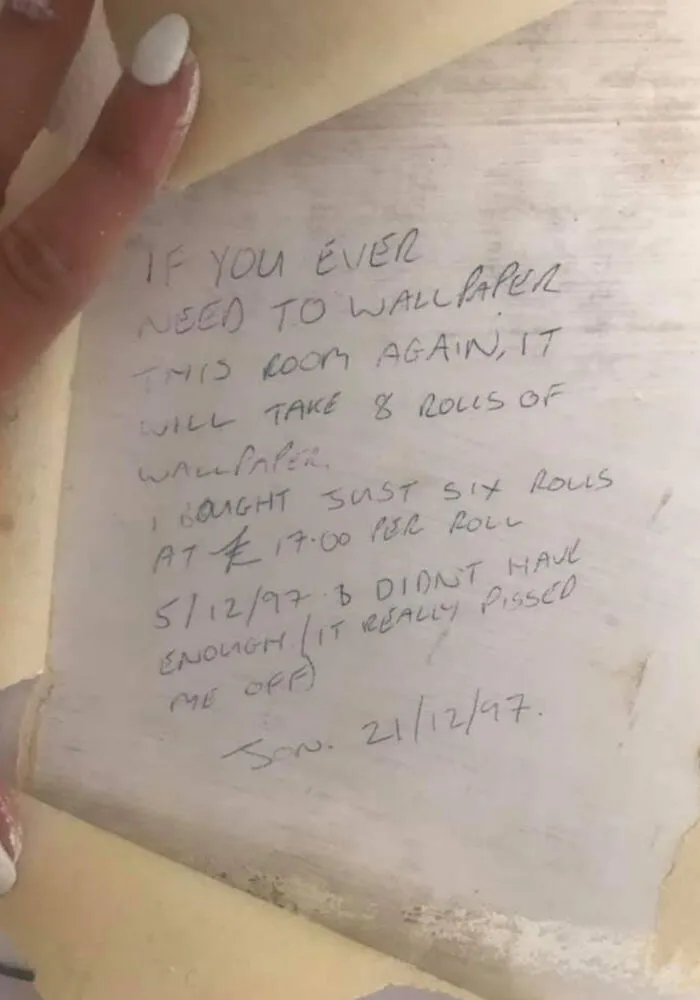 IF YOU EVER
NEED TO WALLPAPER
THIS ROOM AGAIN, IT
WILL TAKE 8 ROLLS OF
WALLPAPER.
I BOUGHT JUST SIX ROLLS
AT £17.00 PER ROLL
5/12/97 & DIDN'T HAVE
ENOUGH (IT REALLY PISSED
ME OFF)
JON. 21/12/97.